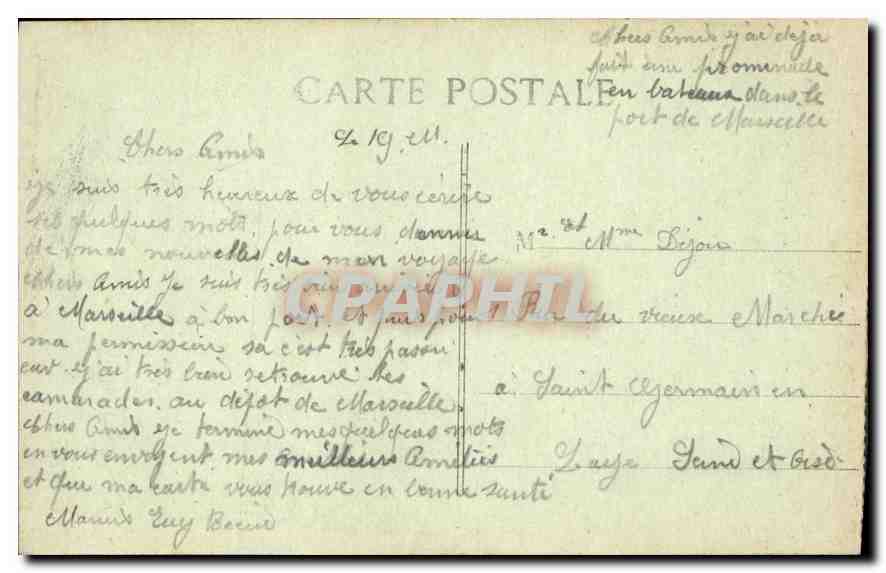 Chers Amis j'ai déja
fait une promenade
en bateaux dans le
port de Marseille
CARTE POSTALE
Chers Amis Le 19 M.
je suis très heureux de vous écrire
ses quelques mots. pour vous donner
de mes nouvelles de mon voyage
Chers Amis Je suis très bien
à Marseille à bon port. et puis pour
ma permission sa c'est très passer
car j'ai très bien retrouvé les
camarades. au dépot de Marseille
Chers Amis je termine mes quelques mots
en vous envoyent mes meilleurs Amitiés
et que ma carte vous trouve en bonne santé
Mr et Mme Dijou
1 Rue du vieux Marché
à Saint Germain en
Laye Seine et Oise
CPAPHIL